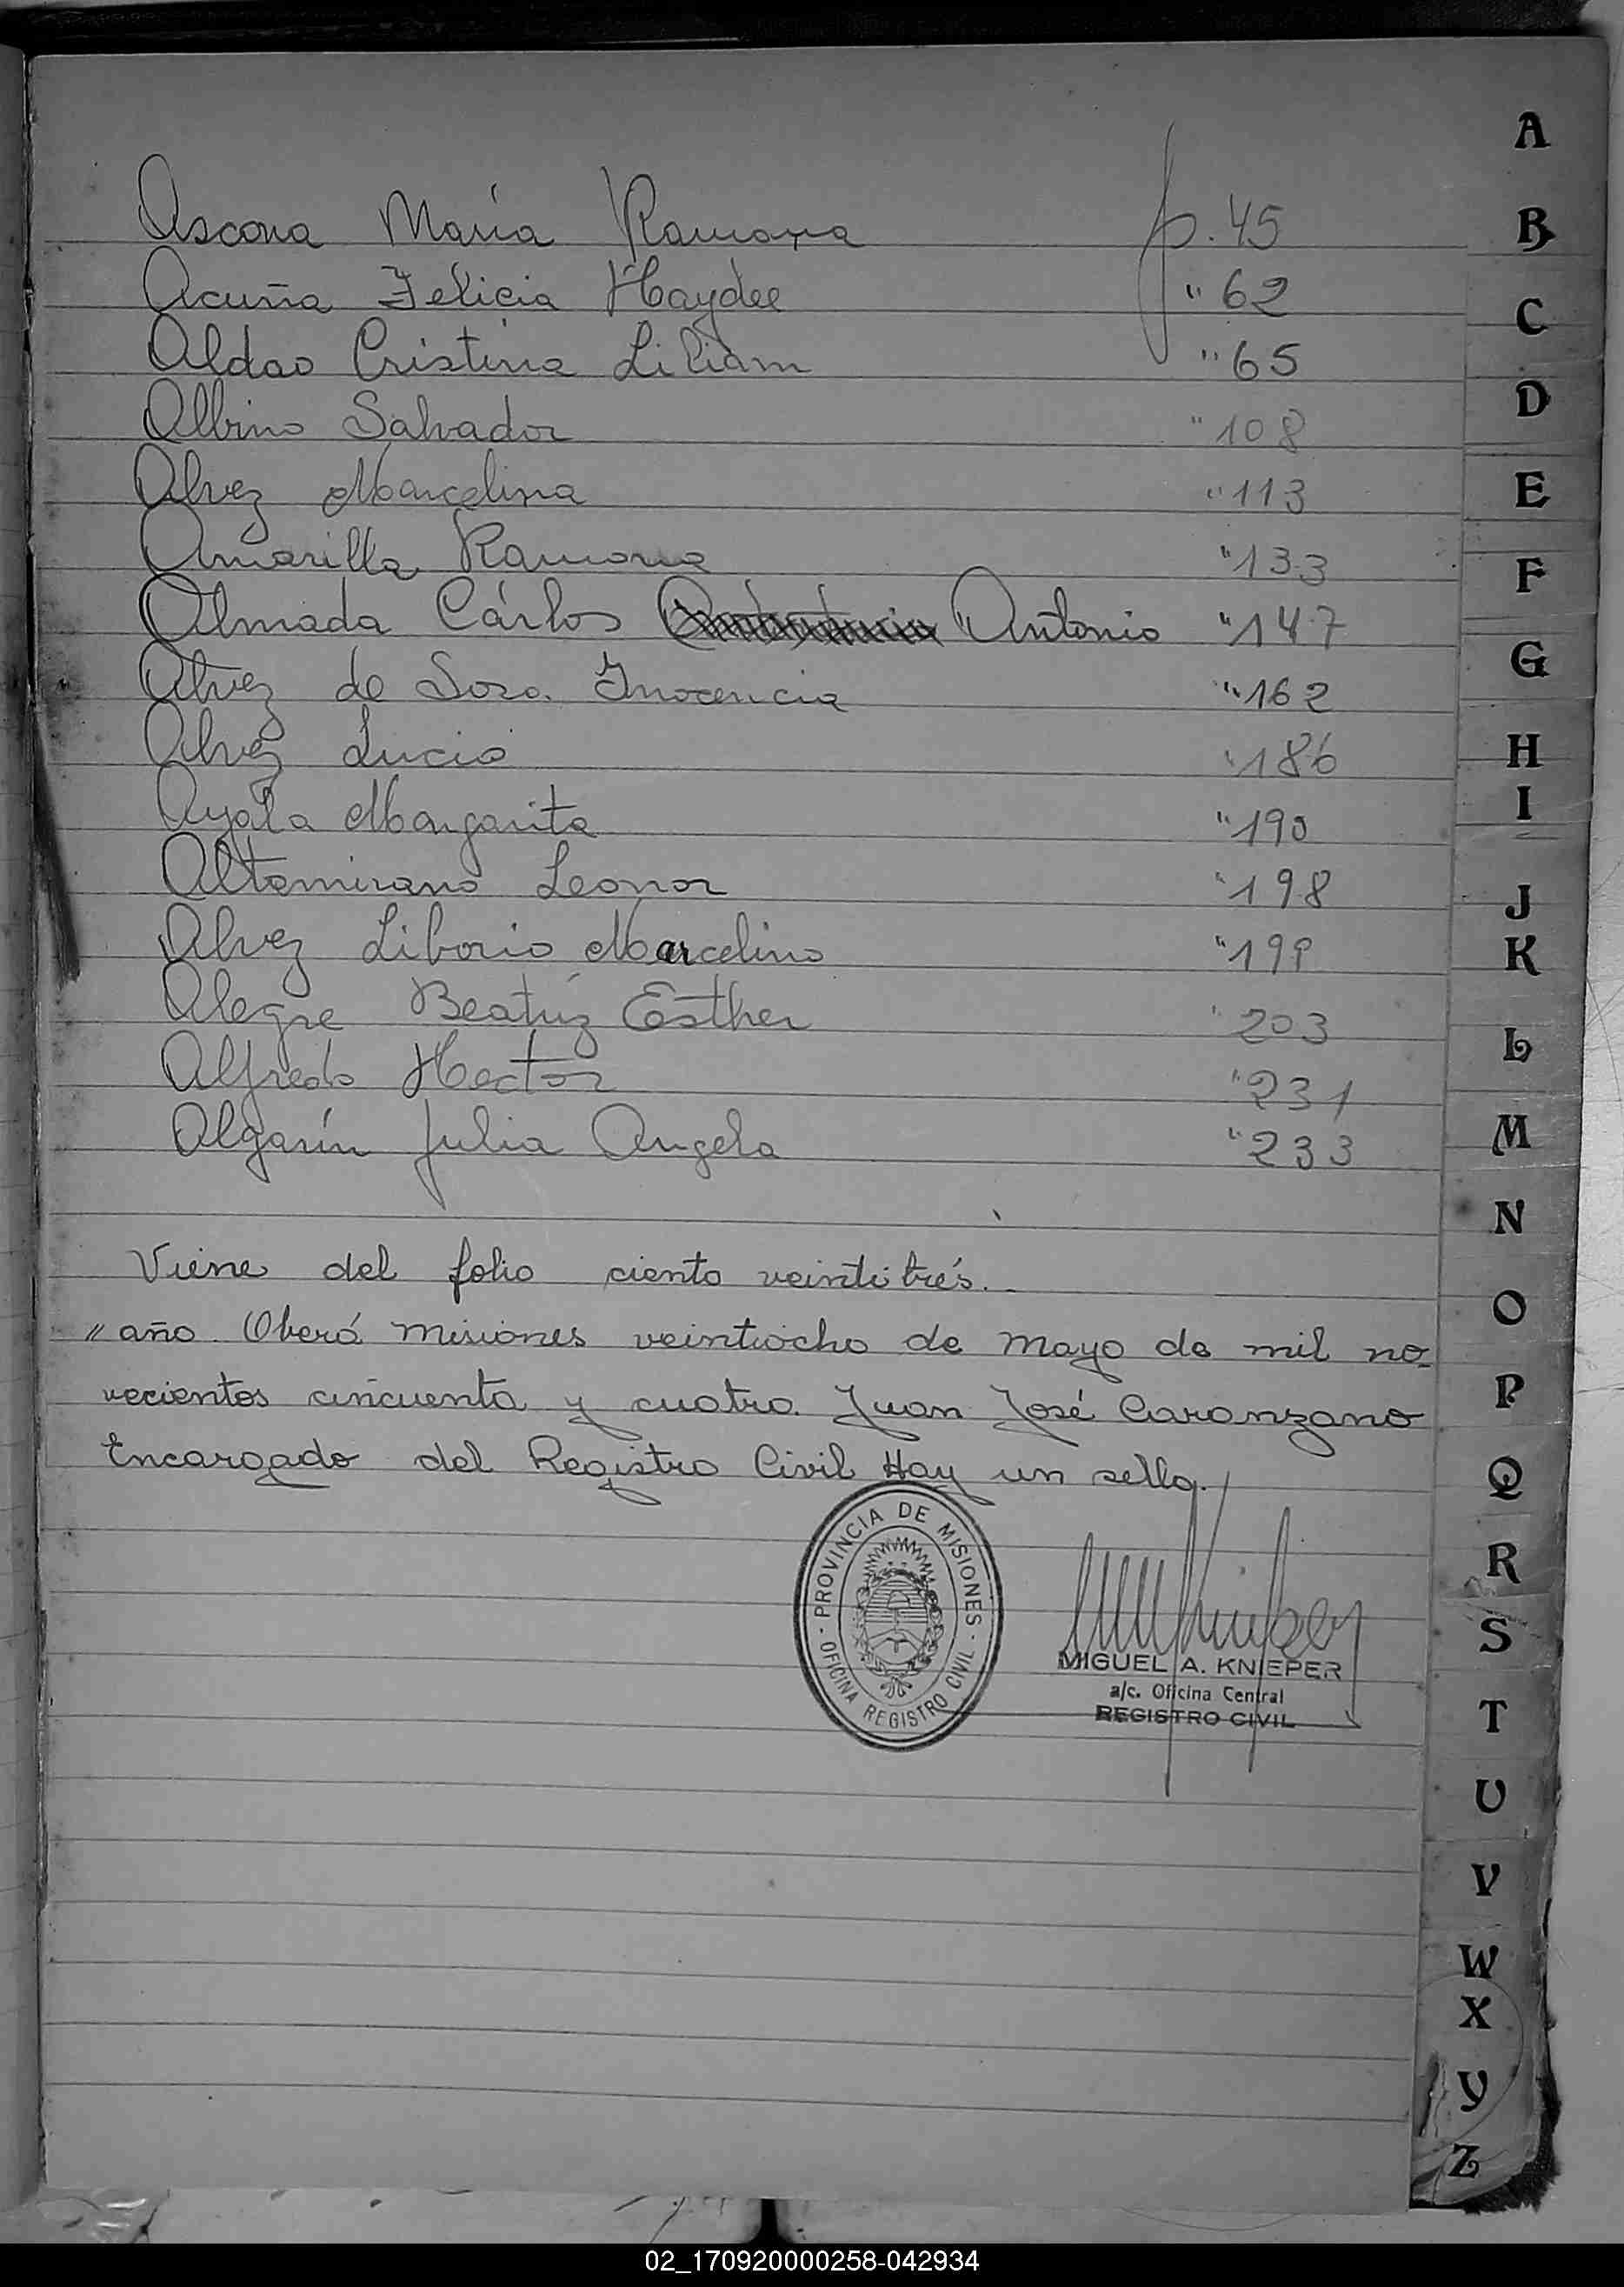 Ascona María Ramona p. 45
Acuña Felicia Haydee " 62
Aldao Cristina Liliam " 65
Albino Salvador " 108
Alvez Marcelina " 113
Amarilla Ramona " 133
Almada Cárlos Antonio " 147
Alvez de Soza Inocencia " 162
Alvez Lucia " 186
Ayala Margarita " 190
Altamirano Leonor " 198
Alvez Liborio Marcelino " 199
Alegre Beatríz Esther " 203
Alfredo Hector " 231
Algarín Julia Angela " 233
Viene del folio ciento veintitrés.
" año Oberá Misiones veintiocho de mayo de mil no-
vecientos cincuenta y cuatro. Juan José Caranzano
Encargado del Registro Civil Hay un sello.
PROVINCIA DE MISIONES
OFICINA REGISTRO CIVIL
MIGUEL A. KNIEPER
a/c. Oficina Central
REGISTRO CIVIL
A
B
C
D
E
F
G
H
I
J
K
L
M
N
O
P
Q
R
S
T
U
V
W
X
Y
Z
02_170920000258-042934